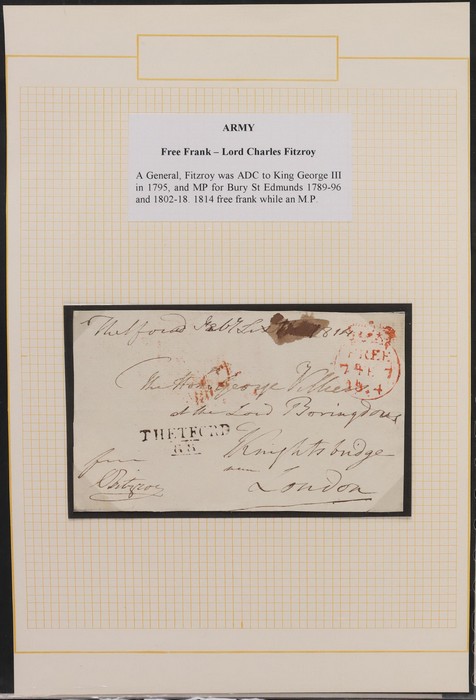 ARMY
Free Frank – Lord Charles Fitzroy
A General, Fitzroy was ADC to King George III
in 1795, and MP for Bury St Edmunds 1789-96
and 1802-18. 1814 free frank while an M.P.
Thetford Feby 1814
FREE
7 FE 7
The Honble George Villiers
at the Lord Boringdons
THETFORD
Knightsbridge
near
London
free
C Fitzroy